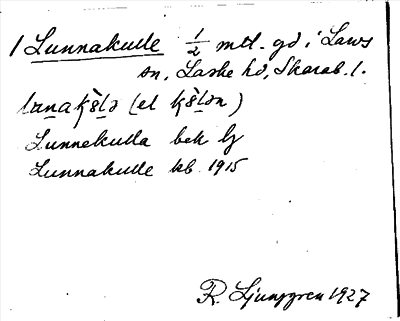 1 Lunnakulle 1/2 mtl. gd i Laws
sn, Laske hd, Skarab. l.
lunakʂ̀l̠ə (el kʂ̀l̠ən)
Lunnekulla bek lj
Lunnakulle kb. 1915
R. Ljunggren 1927